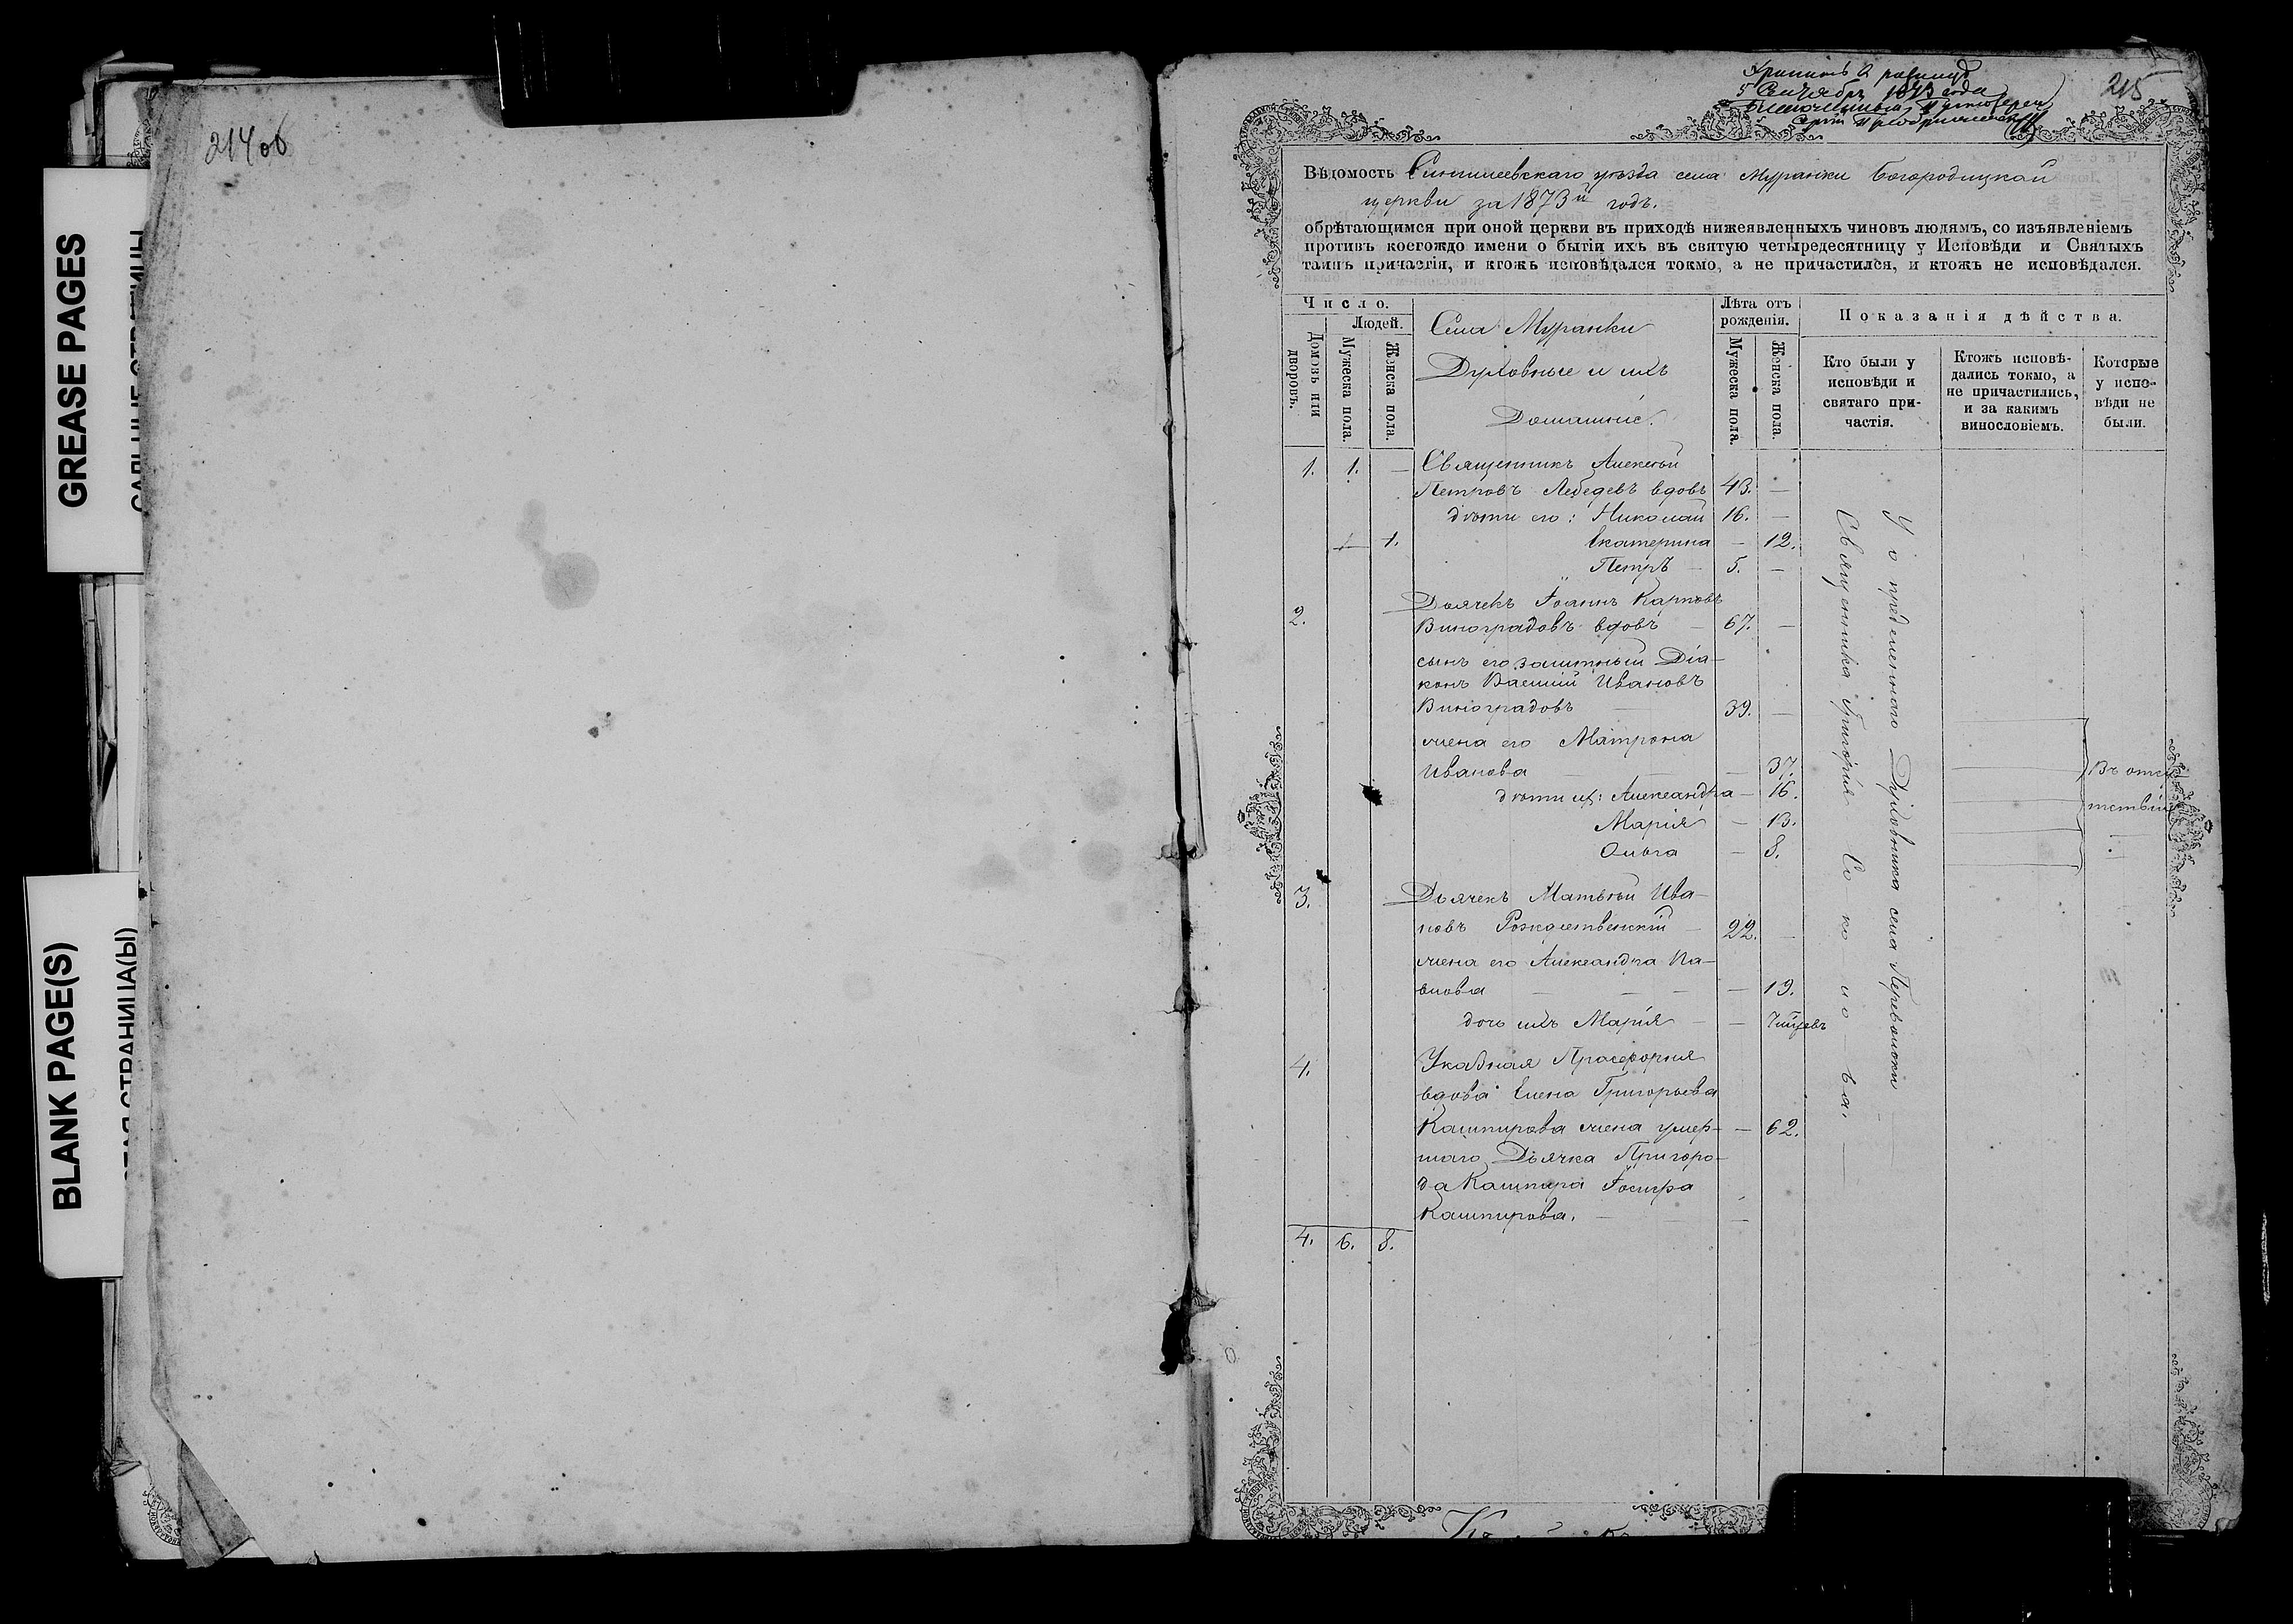 214 об
GREASE PAGES
BLANK PAGE(S)
215
5 Сентября 1873 года
Вѣдомость Сингилеевскаго уѣзда села Муранки Богородицкой
церкви за 1873й годъ.
обрѣтающимся при оной церкви въ приходѣ нижеявленныхъ чиновъ людямъ, со изъявленіемъ
противъ коегождо имени о бытіи ихъ въ святую четыредесятницу у Исповѣди и Святыхъ
таинъ причастія, и ктожъ исповѣдался токмо, а не причастился, и ктожъ не исповѣдался.
Число.
Людей.
Домовъ или
дворовъ.
Мужеска пола.
Женска пола.
Села Муранки
Духовные и ихъ
Домашніе.
Лѣта отъ
рожденія.
Мужеска пола.
Женска пола.
Показанія дѣйства.
Кто были у
исповѣди и
святаго при-
частія.
Ктожъ исповѣ-
дались токмо, а
не причастились,
и за какимъ
винословіемъ.
Которые
у испо-
вѣди не
были.
1. 1. — Священникъ Алексѣй
Петровъ Лебедевъ вдовъ 43. —
дѣти его: Николай 16. —
1. Екатерина — 12.
Петръ — 5. —
2. Дьячекъ Іоаннъ Карповъ
Виноградовъ вдовъ — 67. —
сынъ его заштатный Діа-
конъ Василій Ивановъ
Виноградовъ — 39. —
жена его Матрона
Иванова — — 37.
дѣти их: Александра — 16.
Марія — 13.
Ольга — 8.
Въ отсу-
тствіи
3. Дьячекъ Матвѣй Ива-
новъ Рождественскій — 22. —
жена его Александра Па-
влова — — — — 19.
дочь ихъ Марія — —
4. Указная Просфорня
вдова Елена Григорьева
Кашпирова жена умер- — 62.
шаго Дьячка Пригоро-
да Кашпира Іосифа
Кашпирова. — —
4. 6. 8.
У опредѣленнаго Духовника села Переволоки
Священника Григорія Со — ко — ло — ва. —